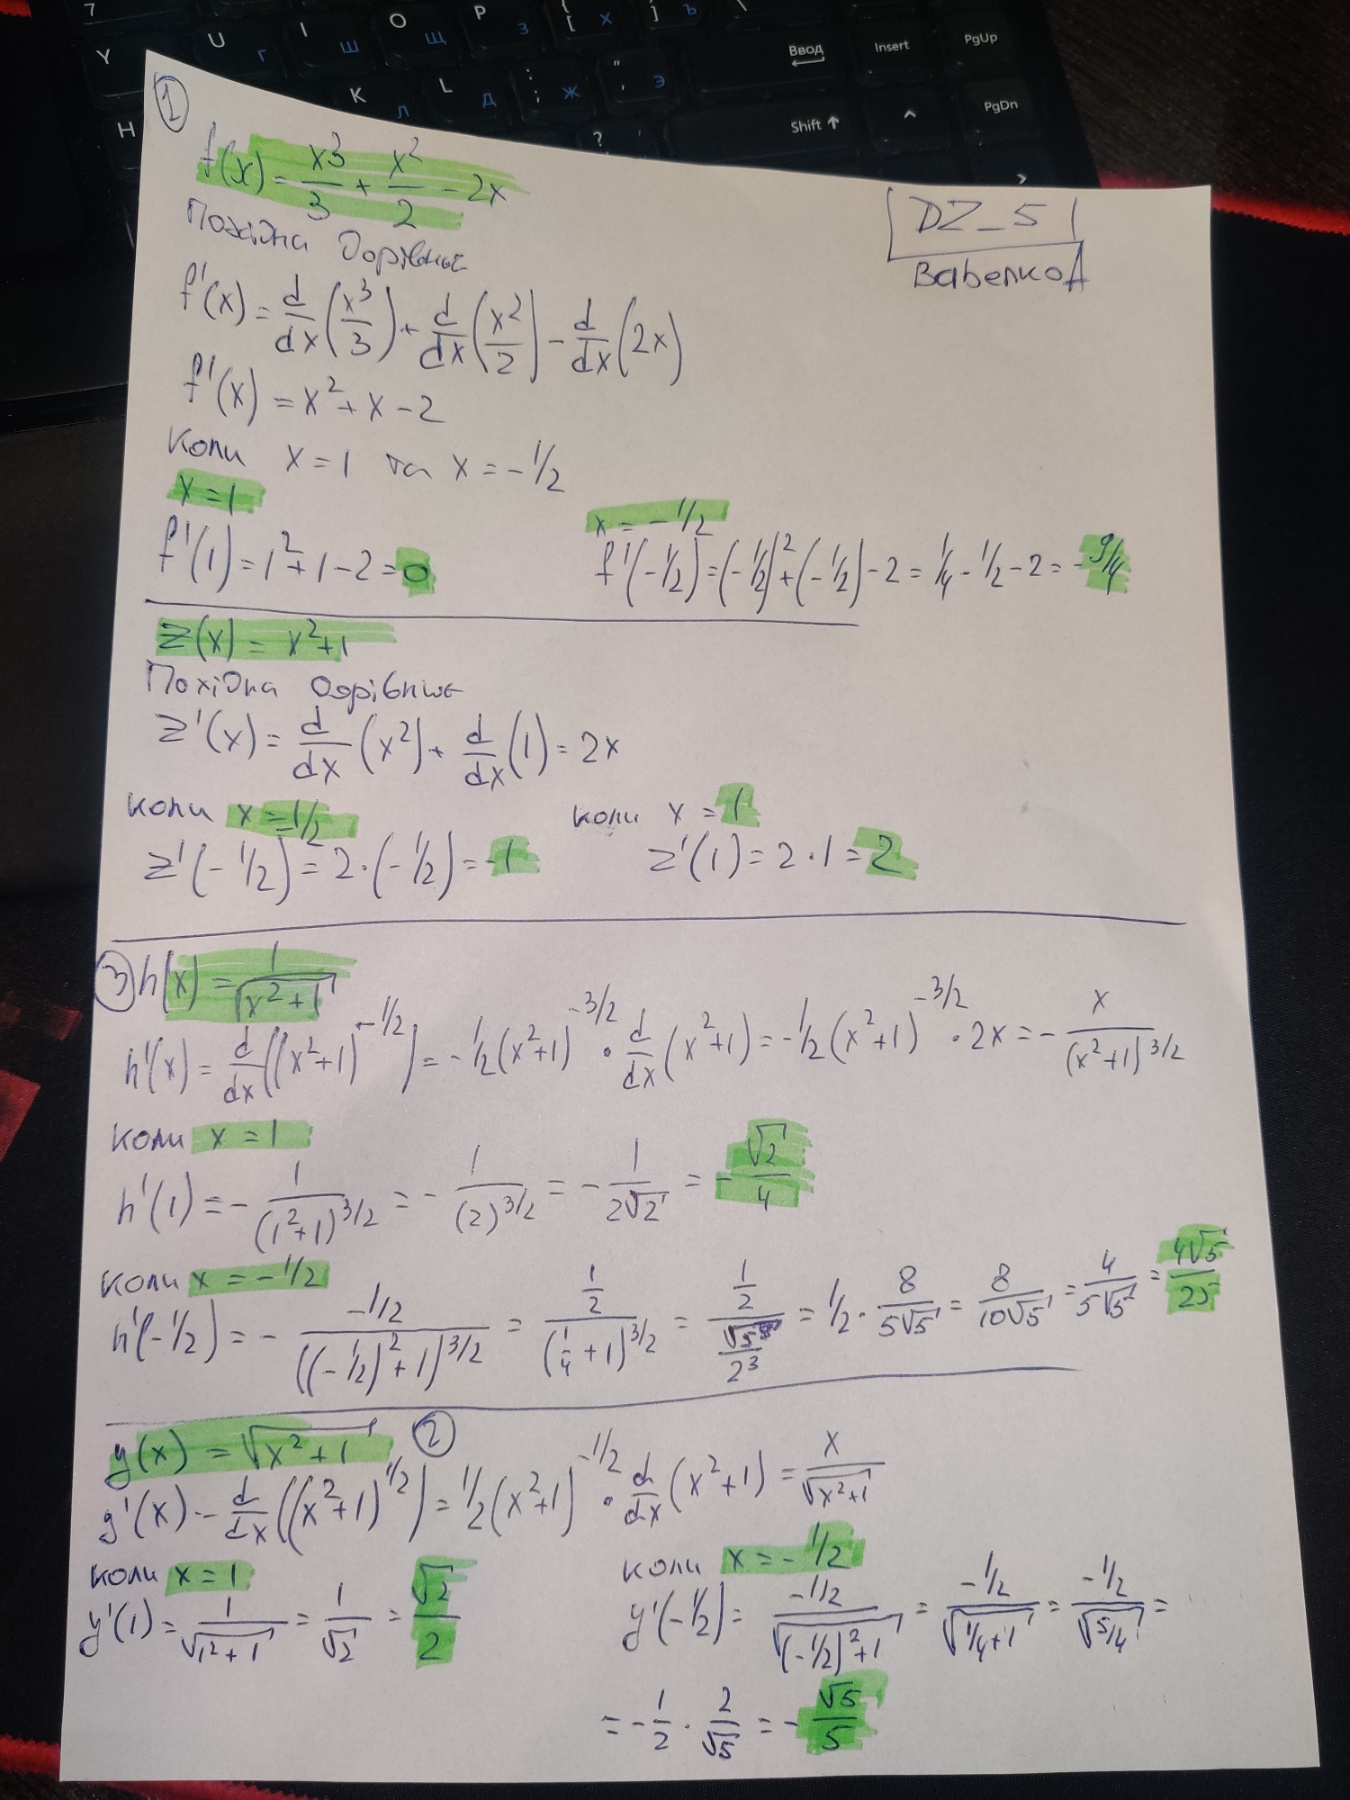 7 U I O P [ ] \
Y Г Ш Щ З { Х } Ъ Ввод Insert PgUp
H K Л L Д : ; Ж " ' Э Shift ↑ ^ PgDn
? /
①
f(x) = x³/3 + x²/2 - 2x
DZ_5
Похідна дорівнює
Babenko A
f'(x) = d/dx (x³/3) + d/dx (x²/2) - d/dx (2x)
f'(x) = x² + x - 2
Коли x = 1 та x = -1/2
x = 1 x = -1/2
f'(1) = 1² + 1 - 2 = 0 f'(-1/2) = (-1/2)² + (-1/2) - 2 = 1/4 - 1/2 - 2 = -9/4
z(x) = x² + 1
Похідна дорівнює
z'(x) = d/dx (x²) + d/dx (1) = 2x
коли x = 1/2 коли x = 1
z'(-1/2) = 2 · (-1/2) = -1 z'(1) = 2 · 1 = 2
③ h(x) = 1/√(x² + 1)
h'(x) = d/dx ((x² + 1)^(-1/2)) = -1/2 (x² + 1)^(-3/2) · d/dx (x² + 1) = -1/2 (x² + 1)^(-3/2) · 2x = - x/(x² + 1)^(3/2)
Коли x = 1
h'(1) = - 1/(1² + 1)^(3/2) = - 1/(2)^(3/2) = - 1/(2√2) = - √2/4
Коли x = -1/2
h'(-1/2) = - (-1/2)/((-1/2)² + 1)^(3/2) = (1/2)/(1/4 + 1)^(3/2) = (1/2)/(√5³/2³) = 1/2 · 8/(5√5) = 8/(10√5) = 4/(5√5) = 4√5/25
y(x) = √(x² + 1) ②
y'(x) - d/dx ((x² + 1)^(1/2)) = 1/2 (x² + 1)^(-1/2) · d/dx (x² + 1) = x/√(x² + 1)
коли x = 1 коли x = -1/2
y'(1) = 1/√(1² + 1) = 1/√2 = √2/2 y'(-1/2) = (-1/2)/√((-1/2)² + 1) = (-1/2)/√(1/4 + 1) = (-1/2)/√(5/4) =
= - 1/2 · 2/√5 = - √5/5